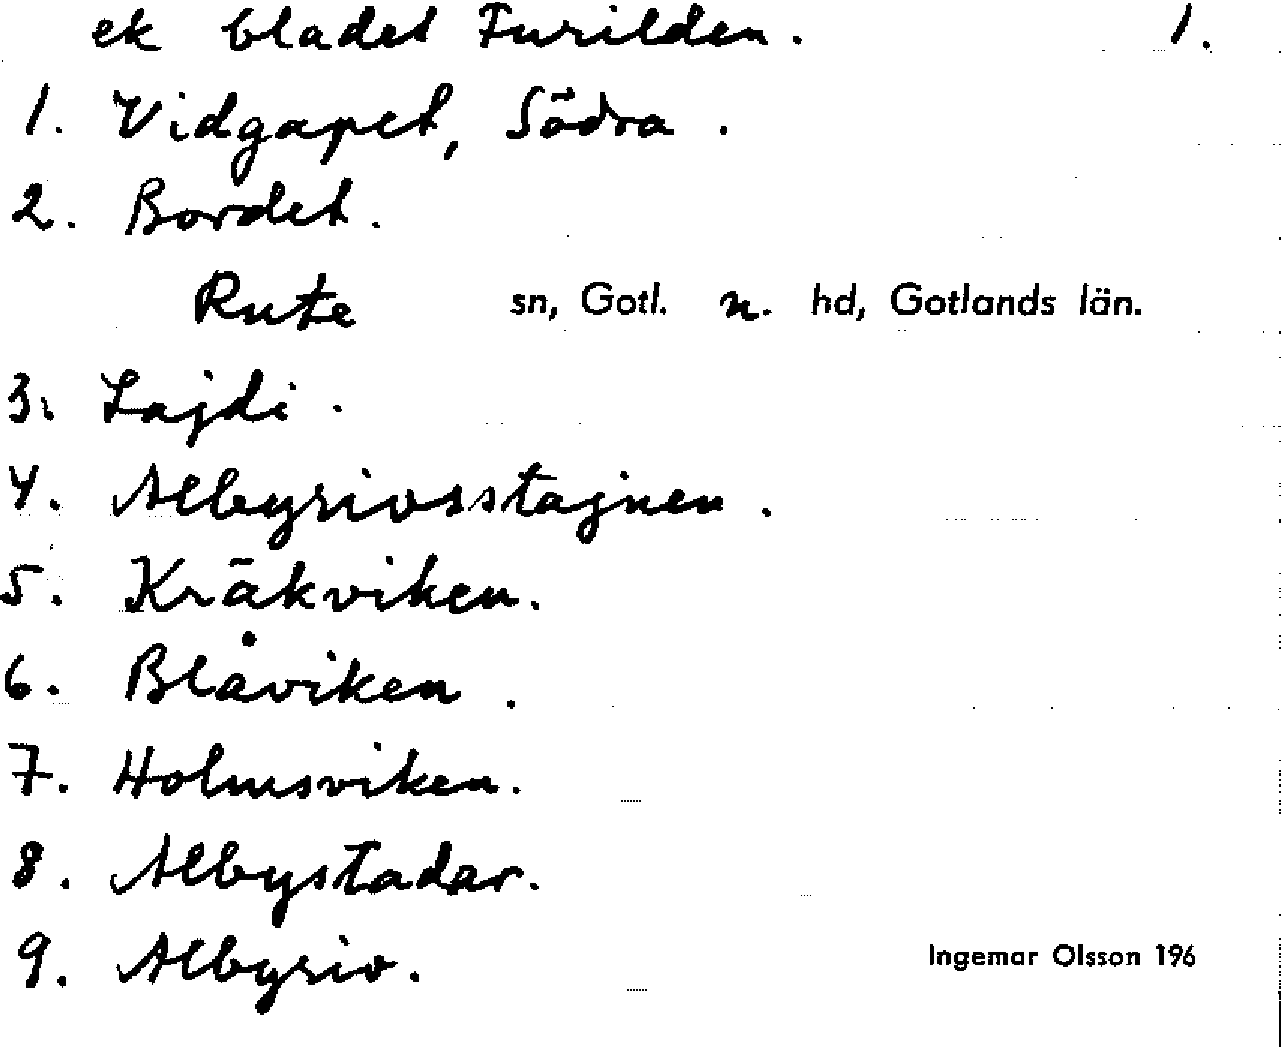 ek bladet Furilden. 1.
1. Vidgapet, Södra.
2. Bordet.
Rute sn, Gotl. n. hd, Gotlands län.
3. Lajdi.
4. Albyrivsstajnen.
5. Kräkviken.
6. Blåviken.
7. Holmsviken.
8. Albystadar.
9. Albyriv.
Ingemar Olsson 196